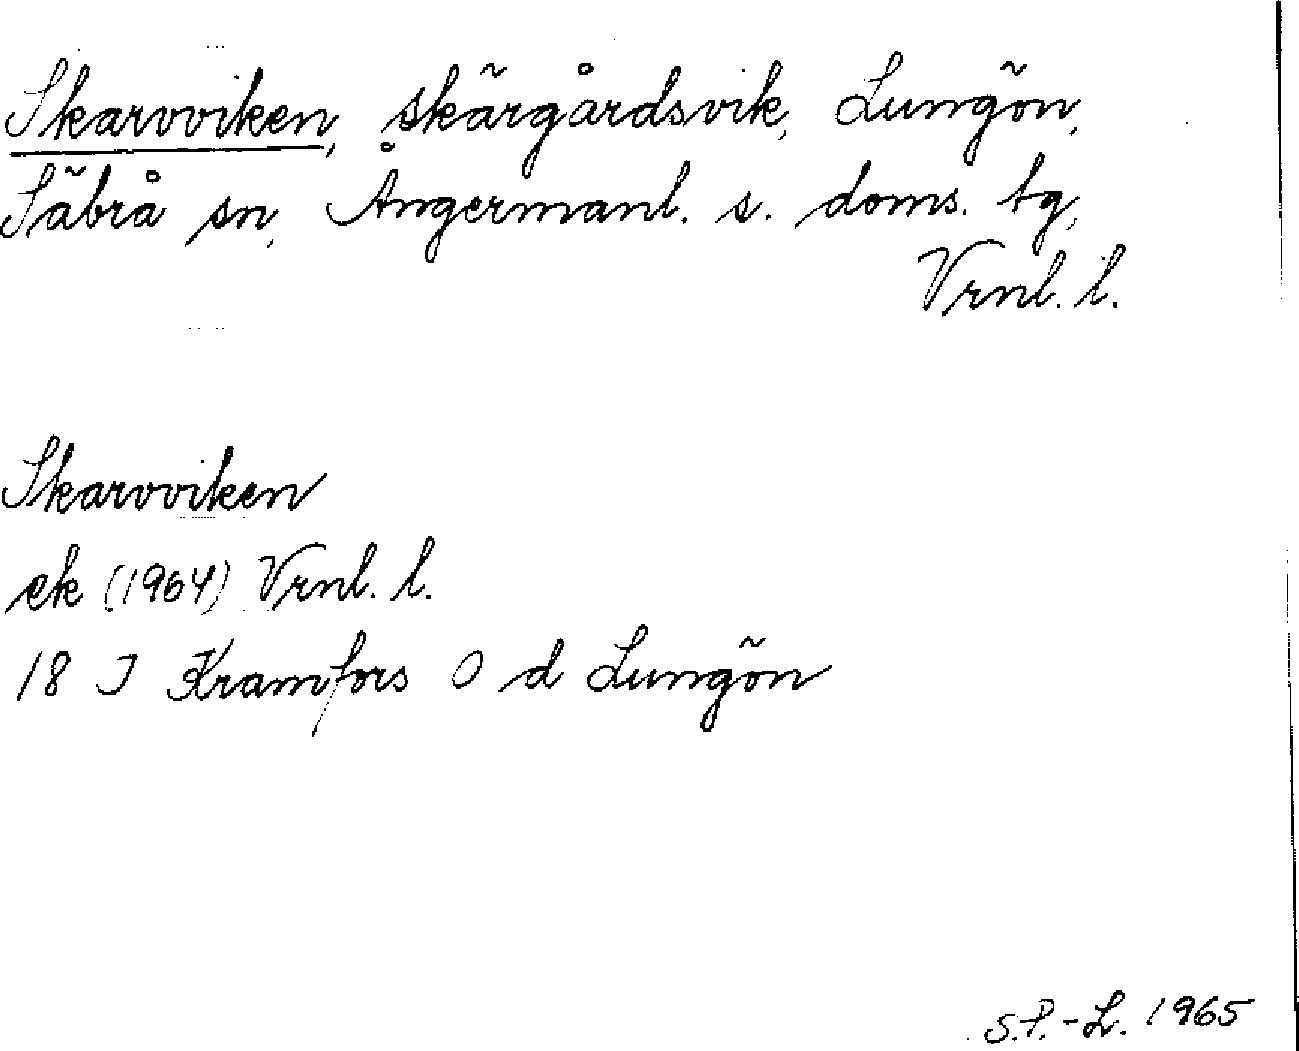 Skarvviken, skärgårdsvik, Lungön,
Säbrå sn, Ångermanl. s. doms. tg,
Vrnl. l.
Skarvviken
ek (1964) Vrnl. l.
18 J Kramfors O d Lungön
S.P.-L. 1965